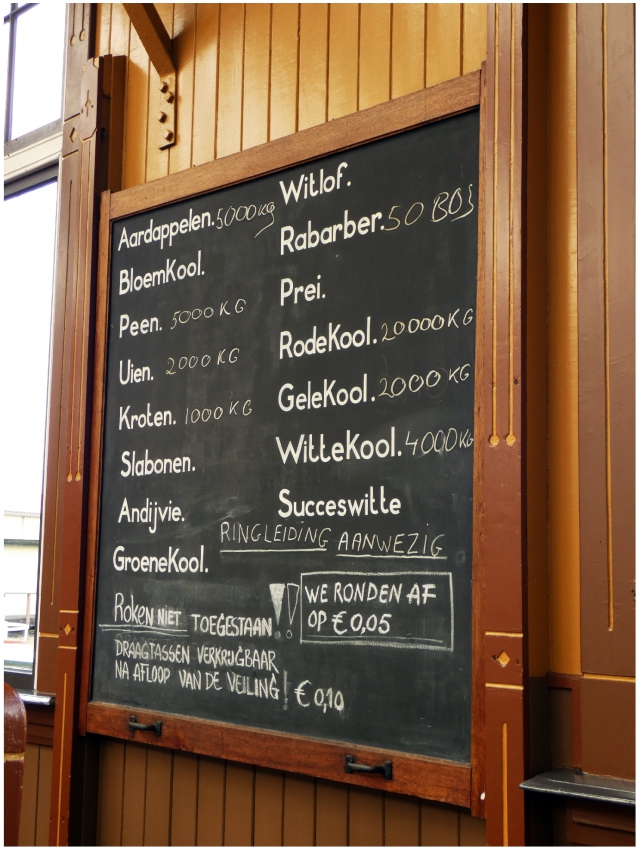 Aardappelen. 5000 kg
BloemKool.
Peen. 5000 KG
Uien. 2000 KG
Kroten. 1000 KG
Slabonen.
Andijvie.
GroeneKool.
Witlof.
Rabarber. 50 BOS
Prei.
RodeKool. 20000 KG
GeleKool. 2000 KG
WitteKool. 4000 KG
Succeswitte
RINGLEIDING AANWEZIG
Roken NIET TOEGESTAAN!!
WE RONDEN AF
OP € 0,05
DRAAGTASSEN VERKRIJGBAAR
NA AFLOOP VAN DE VEILING! € 0,10